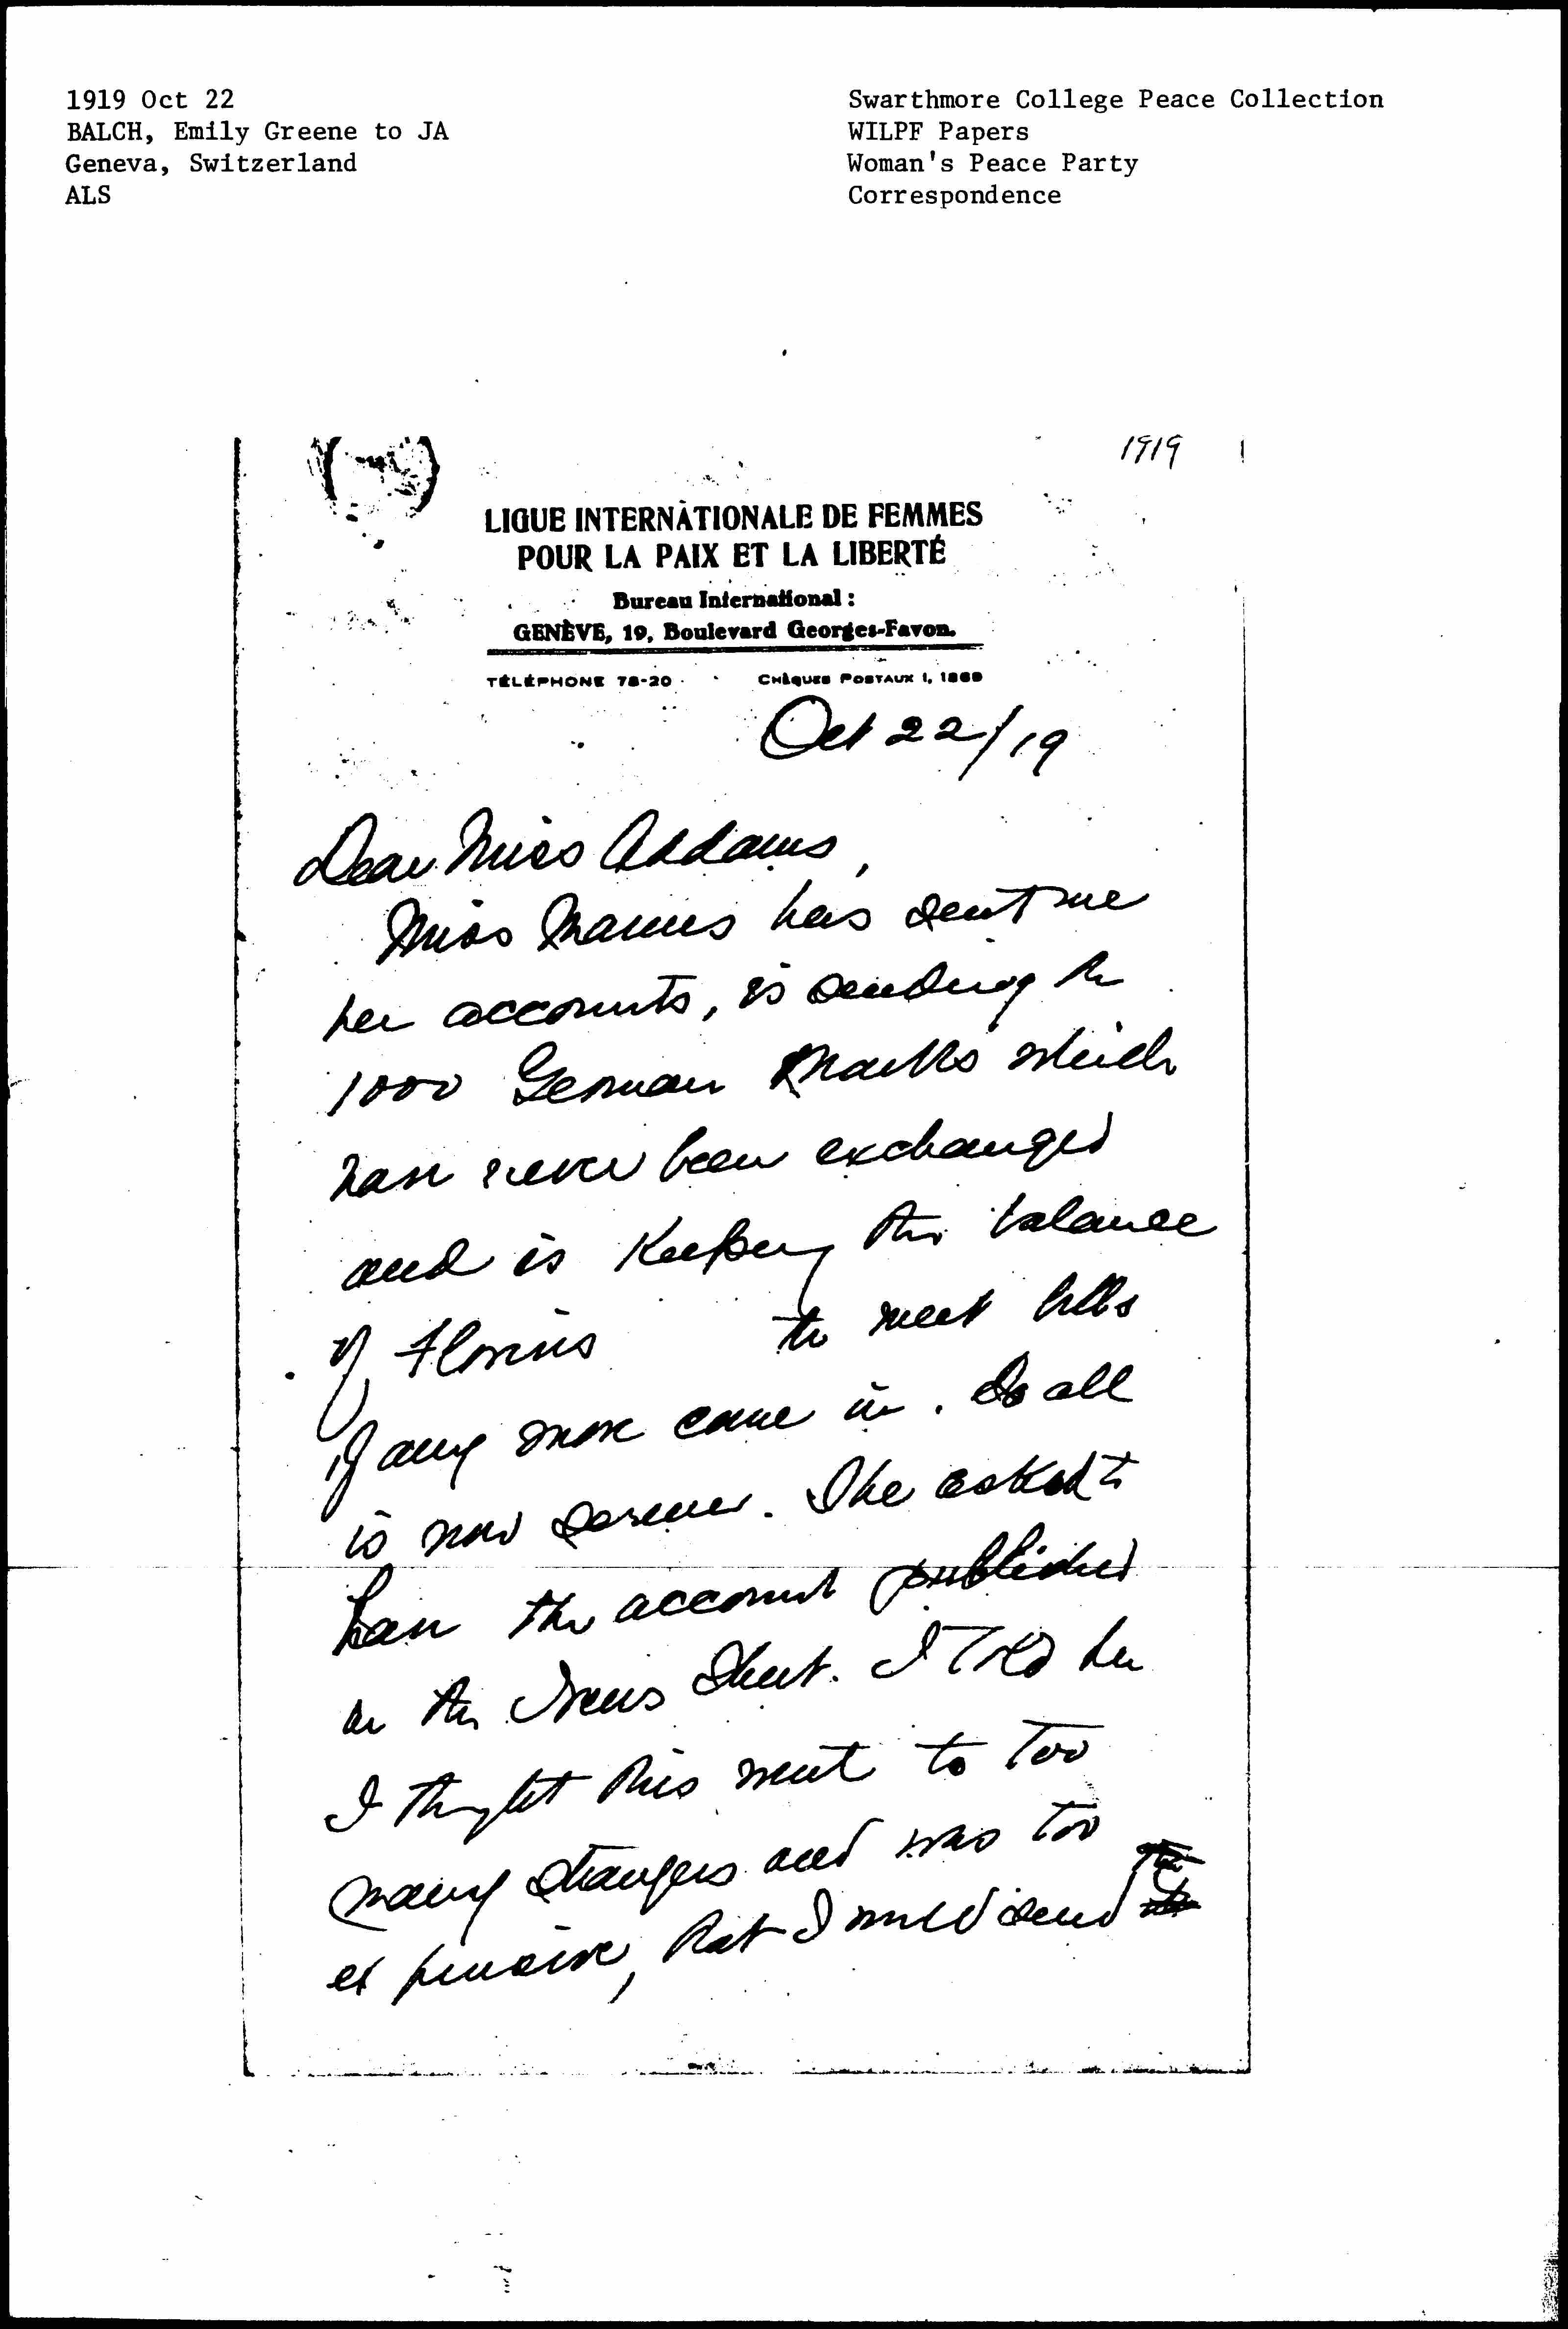 1919 Oct 22
BALCH, Emily Greene to JA
Geneva, Switzerland
ALS
Swarthmore College Peace Collection
WILPF Papers
Woman's Peace Party
Correspondence
1919
LIGUE INTERNATIONALE DE FEMMES
POUR LA PAIX ET LA LIBERTÉ
Bureau International :
GENÈVE, 19, Boulevard Georges-Favon.
TÉLÉPHONE 78-20 CHÈQUES POSTAUX I, 1869
Oct 22/19
Dear Miss Addams,
Miss Manus has sent me
her accounts, is sending the
1000 German Marks which
have never been exchanged
and is keeping the balance
of Florins to meet bills
if any more come in. So all
is now serene. She asked to
have the account published
in the News Sheet. I told her
I thought this went to too
many strangers and was too
expensive, that I would send